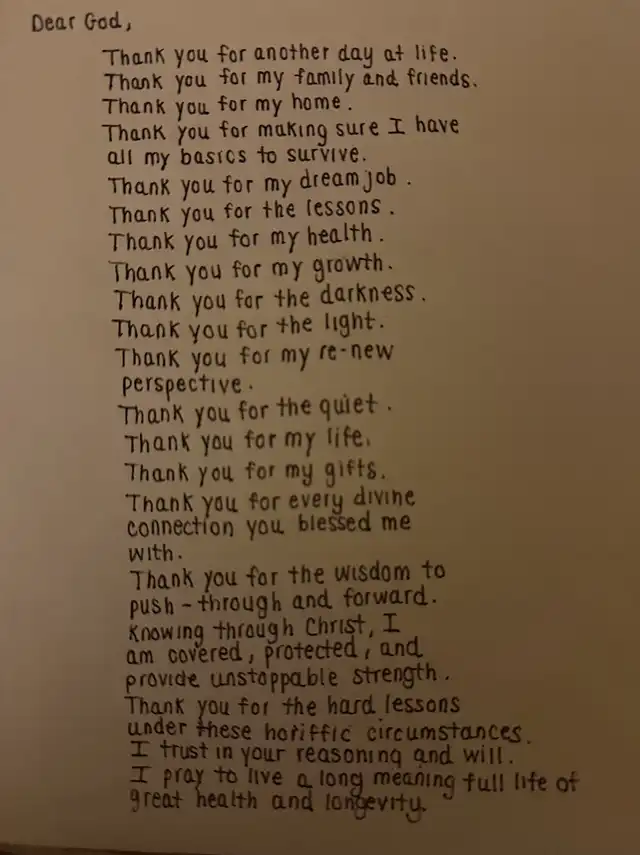 Dear God,
Thank you for another day at life.
Thank you for my family and friends.
Thank you for my home.
Thank you for making sure I have
all my basics to survive.
Thank you for my dream job.
Thank you for the lessons.
Thank you for my health.
Thank you for my growth.
Thank you for the darkness.
Thank you for the light.
Thank you for my re-new
perspective.
Thank you for the quiet.
Thank you for my life.
Thank you for my gifts.
Thank you for every divine
connection you blessed me
with.
Thank you for the wisdom to
push-through and forward.
Knowing through Christ, I
am covered, protected, and
provide unstoppable strength.
Thank you for the hard lessons
under these horiffic circumstances.
I trust in your reasoning and will.
I pray to live a long meaning full life of
great health and longevity.